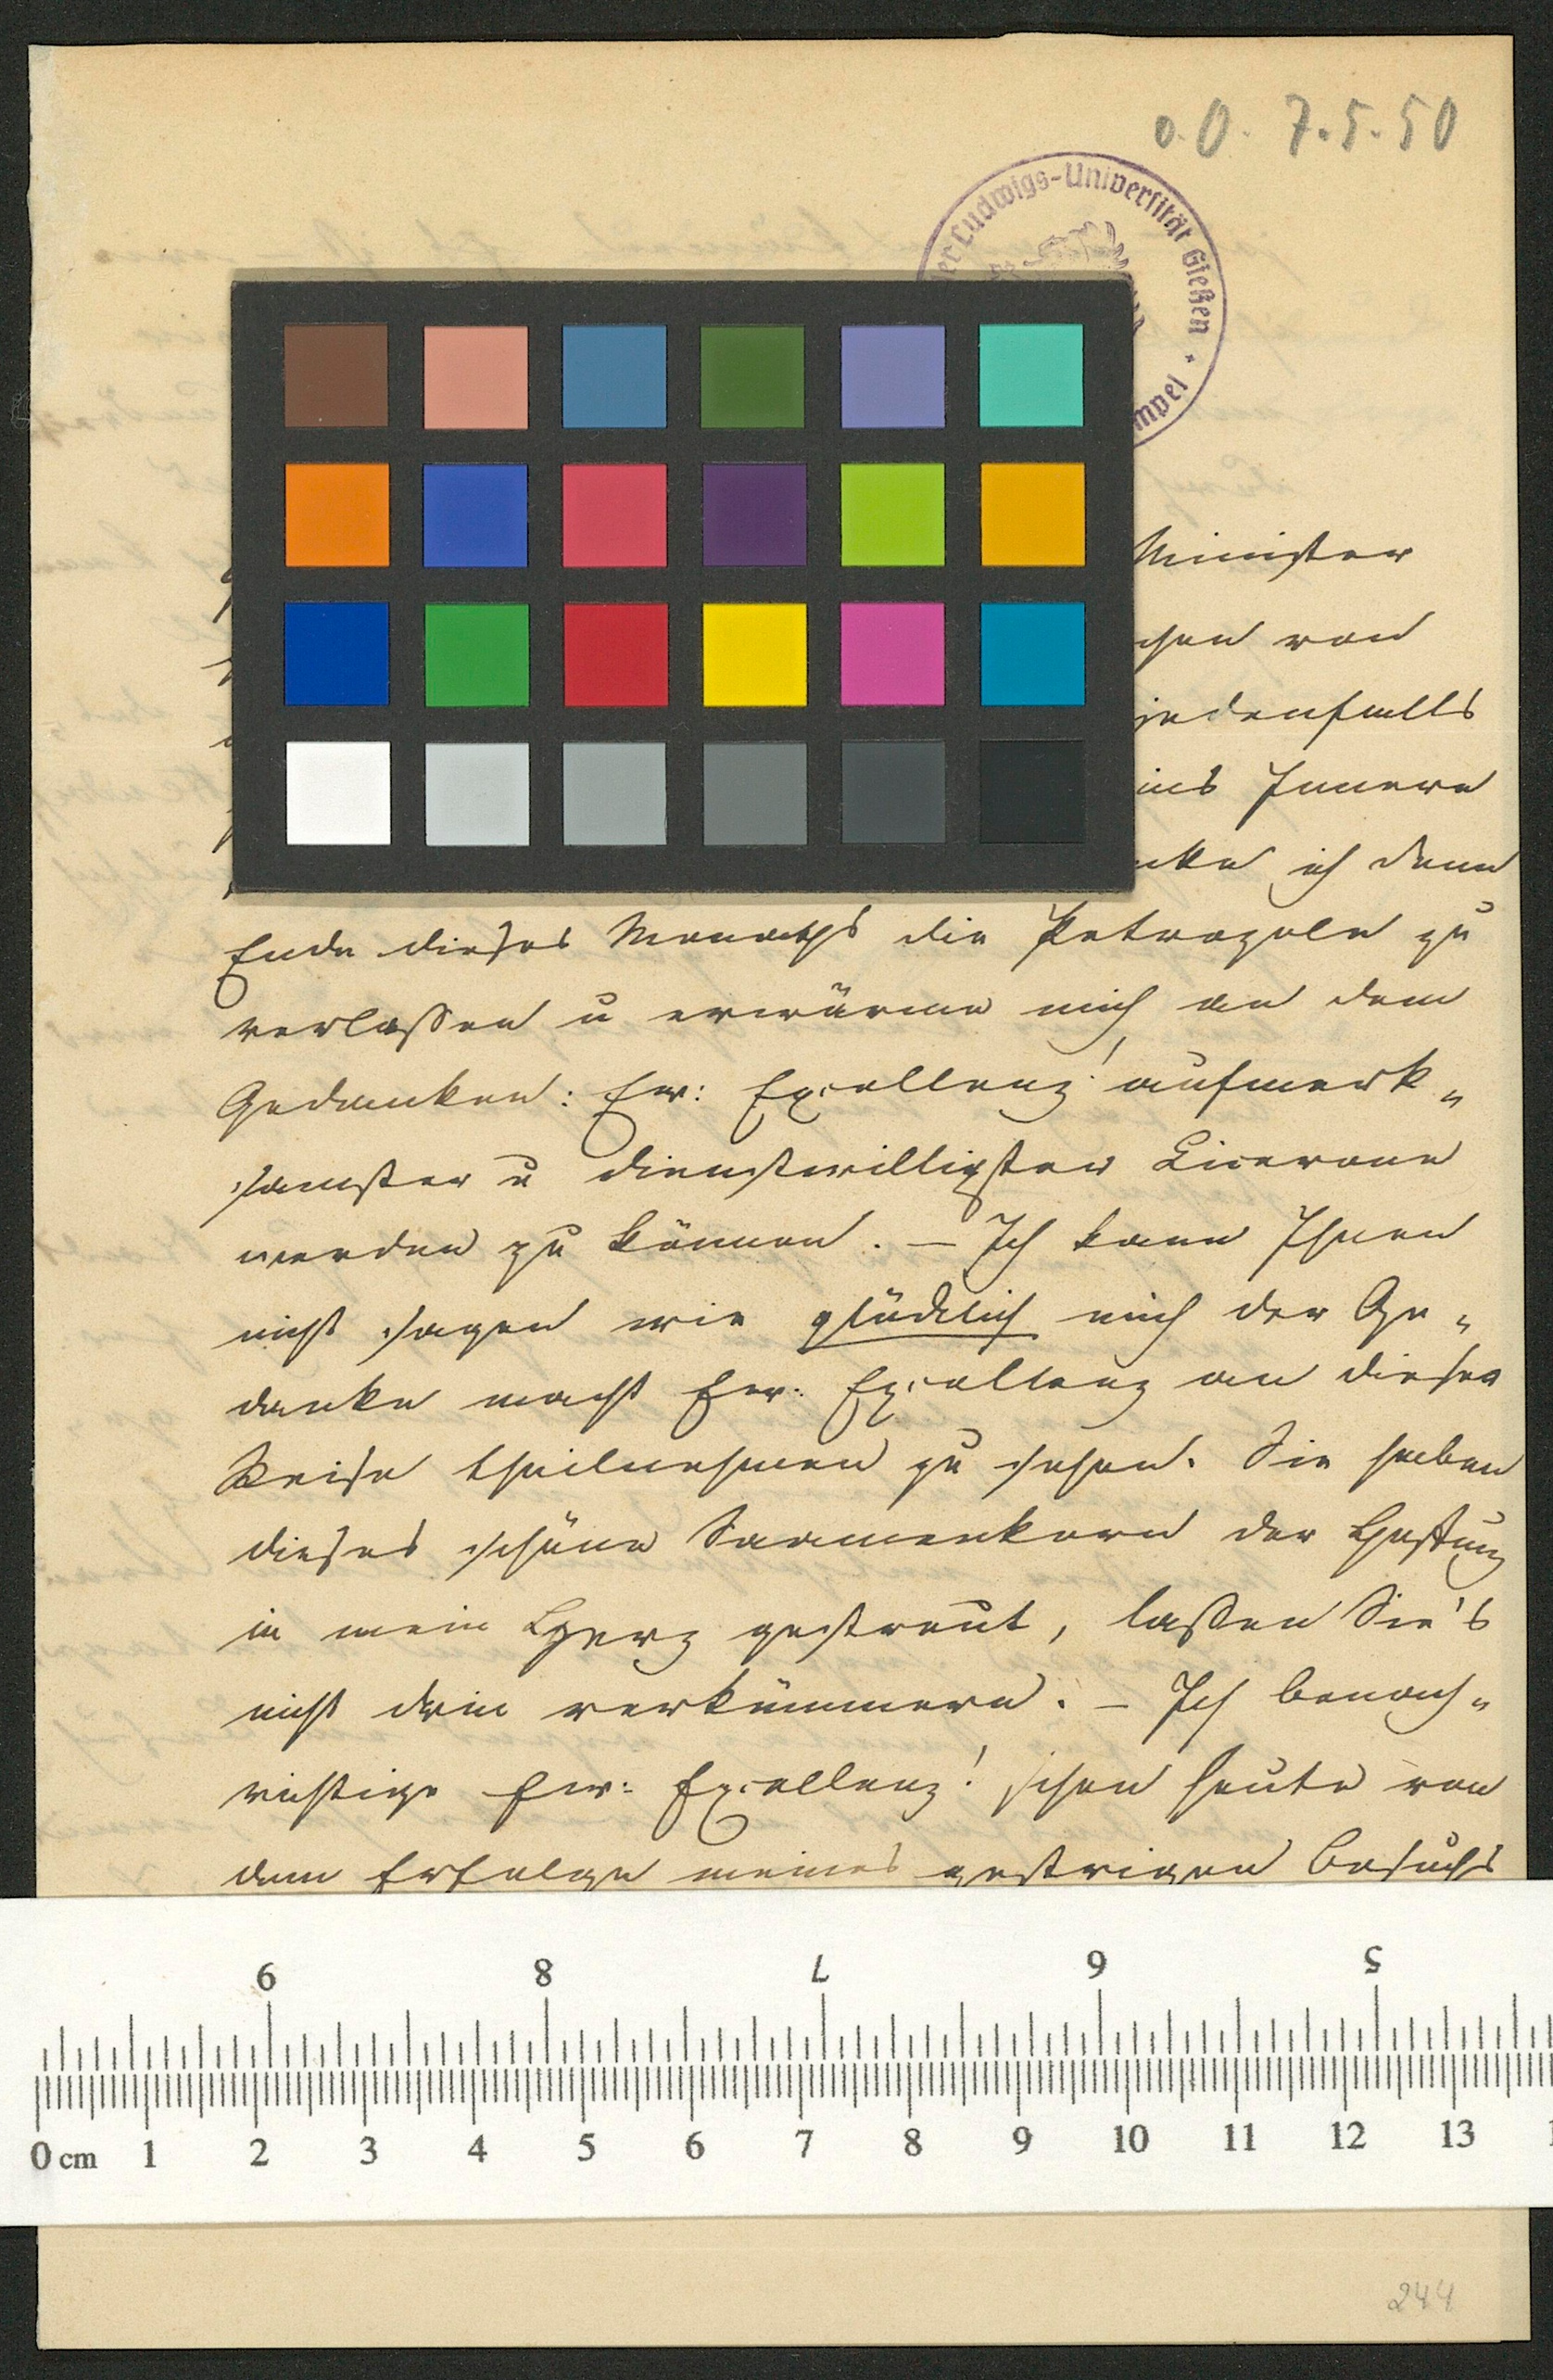 o.O. 7.5.50
der Ludwigs-Universität Gießen
Minister
von
jedenfalls
ins Innere
ich dann
Ende dieses Monaths die Petropolen zu
verlaßen u erwärme mich an dem
Gedanken: Ew: Excellenz! aufmerk„
samster u dienstwilligster Cicerone
werden zu können. – Ich kann Ihnen
nicht sagen wie glücklich mich der Ge„
danke macht Ew: Excellenz an dieser
Reise theilnehmen zu sehen. Sie haben
dieses schöne Saamenkorn der Hoffnung
in mein Herz gestreut, laßen Sie's
nicht drin verkümmern. – Ich benach„
richtige Ew: Excellenz! schon heute von
dem Erfolge meines gestrigen Besuchs
9 8 7 6 5
0 cm 1 2 3 4 5 6 7 8 9 10 11 12 13
244